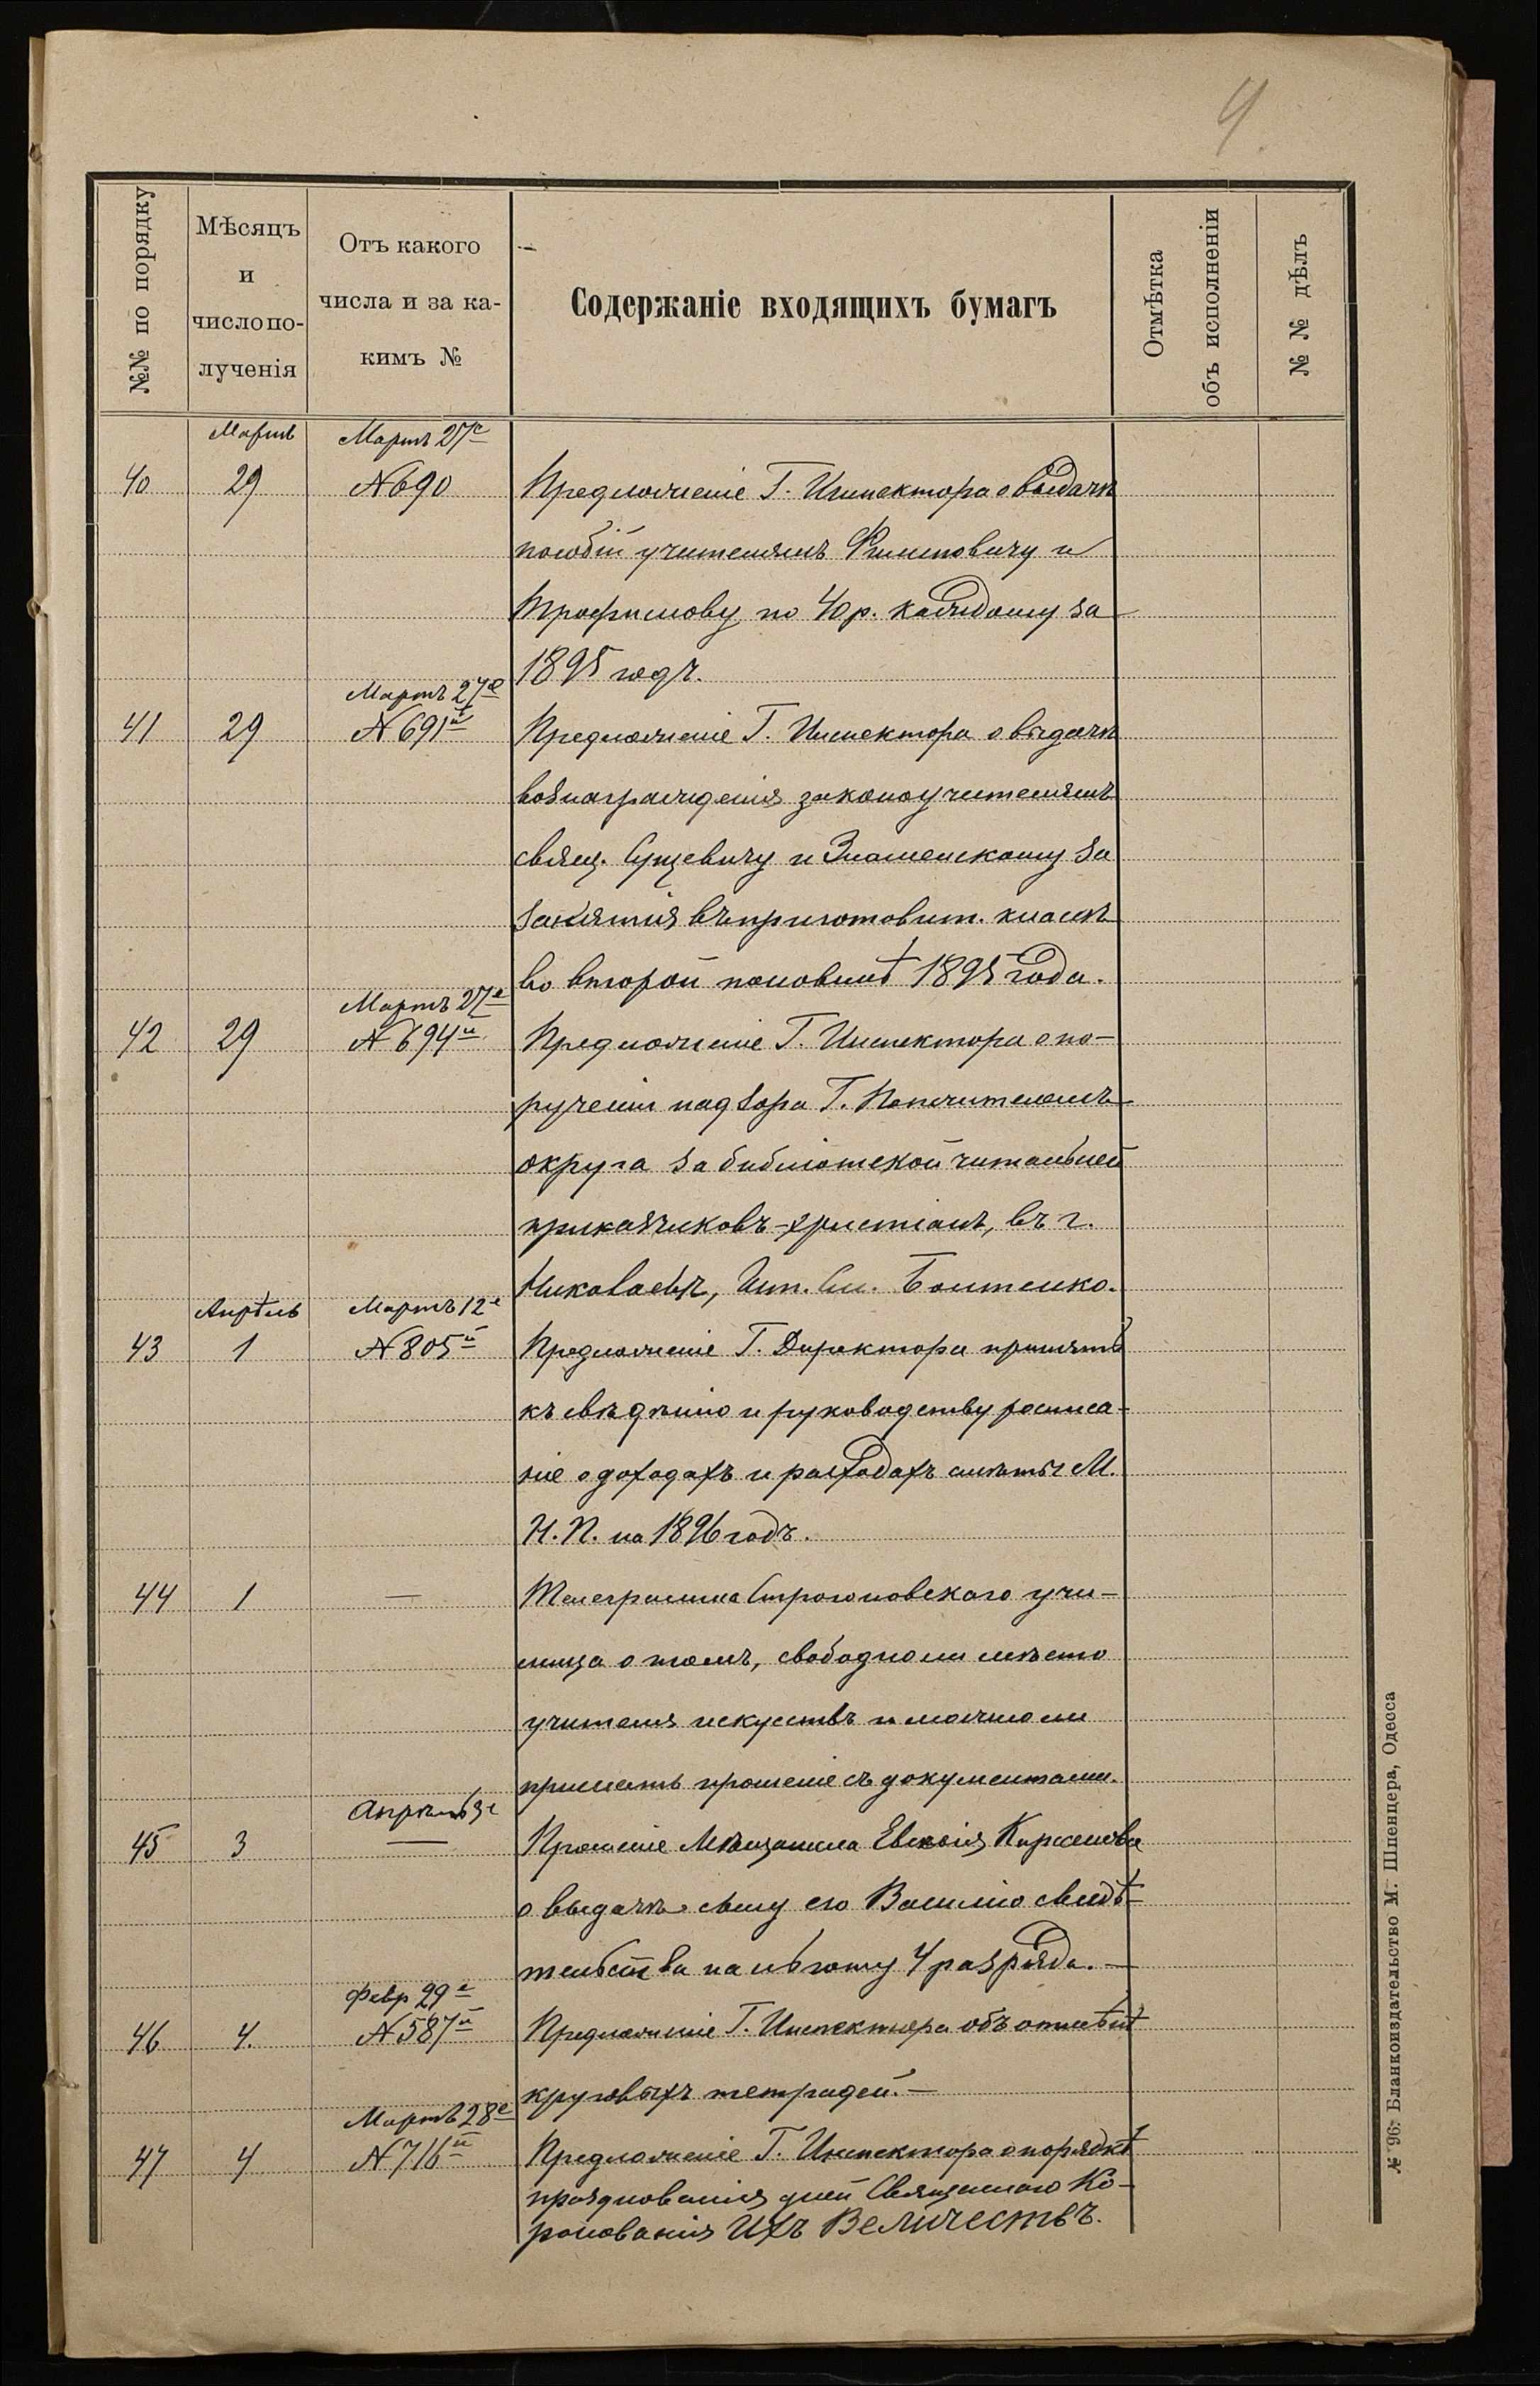 4
№№ по порядку
Мѣсяцъ
и
число по-
лученія
Отъ какого
числа и за ка-
кимъ №
Содержаніе входящихъ бумагъ
Отмѣтка
объ исполненіи
№ № дѣлъ
Мартъ Мартъ 27е
40 29 № 690 Предложеніе Г. Инспектора о выдачѣ
пособій учителямъ Филиповичу и
Трофимову по 40 р. каждому за
1895 годъ.
Мартъ 27е
41 29 № 691й Предложеніе Г. Инспектора о выдачѣ
вознагражденія законоучителямъ
свящ. Сущевичу и Знаменскому за
занятія въ приготовит. классѣ
во второй половинѣ 1895 года.
Мартъ 27е
42 29 № 694й Предложеніе Г. Инспектора о по-
рученіи надзора Г. Попечителемъ
округа за библіотекой читальней
приказчиковъ-христіанъ, въ г.
Николаевѣ, Инт. См. Болтенко.
Апрѣль Мартъ 12е
43 1 № 805й Предложеніе Г. Директора принять
къ свѣдѣнію и руководству росписа-
ніе о доходахъ и расходахъ смѣты М.
Н. П. на 1896 годъ.
44 1 — Телеграмма Строгоновскаго учи-
лища о томъ, свободно ли мѣсто
учителя искусствъ и можно ли
прислать прошеніе съ документами.
Апрѣль 3е
45 3 — Прошеніе Мѣщанина Евсѣія
о выдачѣ сыну его Василію свидѣ-
тельства на льготу 4 разряда. —
Февр 29е
46 4. № 587й Предложеніе Г. Инспектора объ отмѣнѣ
круговыхъ тетрадей. —
Мартъ 28е
47 4 № 716й Предложеніе Г. Инспектора о порядкѣ
празднованія дней Священнаго Ко-
ронованія Ихъ Величествъ.
№ 96. Бланкоиздательство М. Шпенцера, Одесса